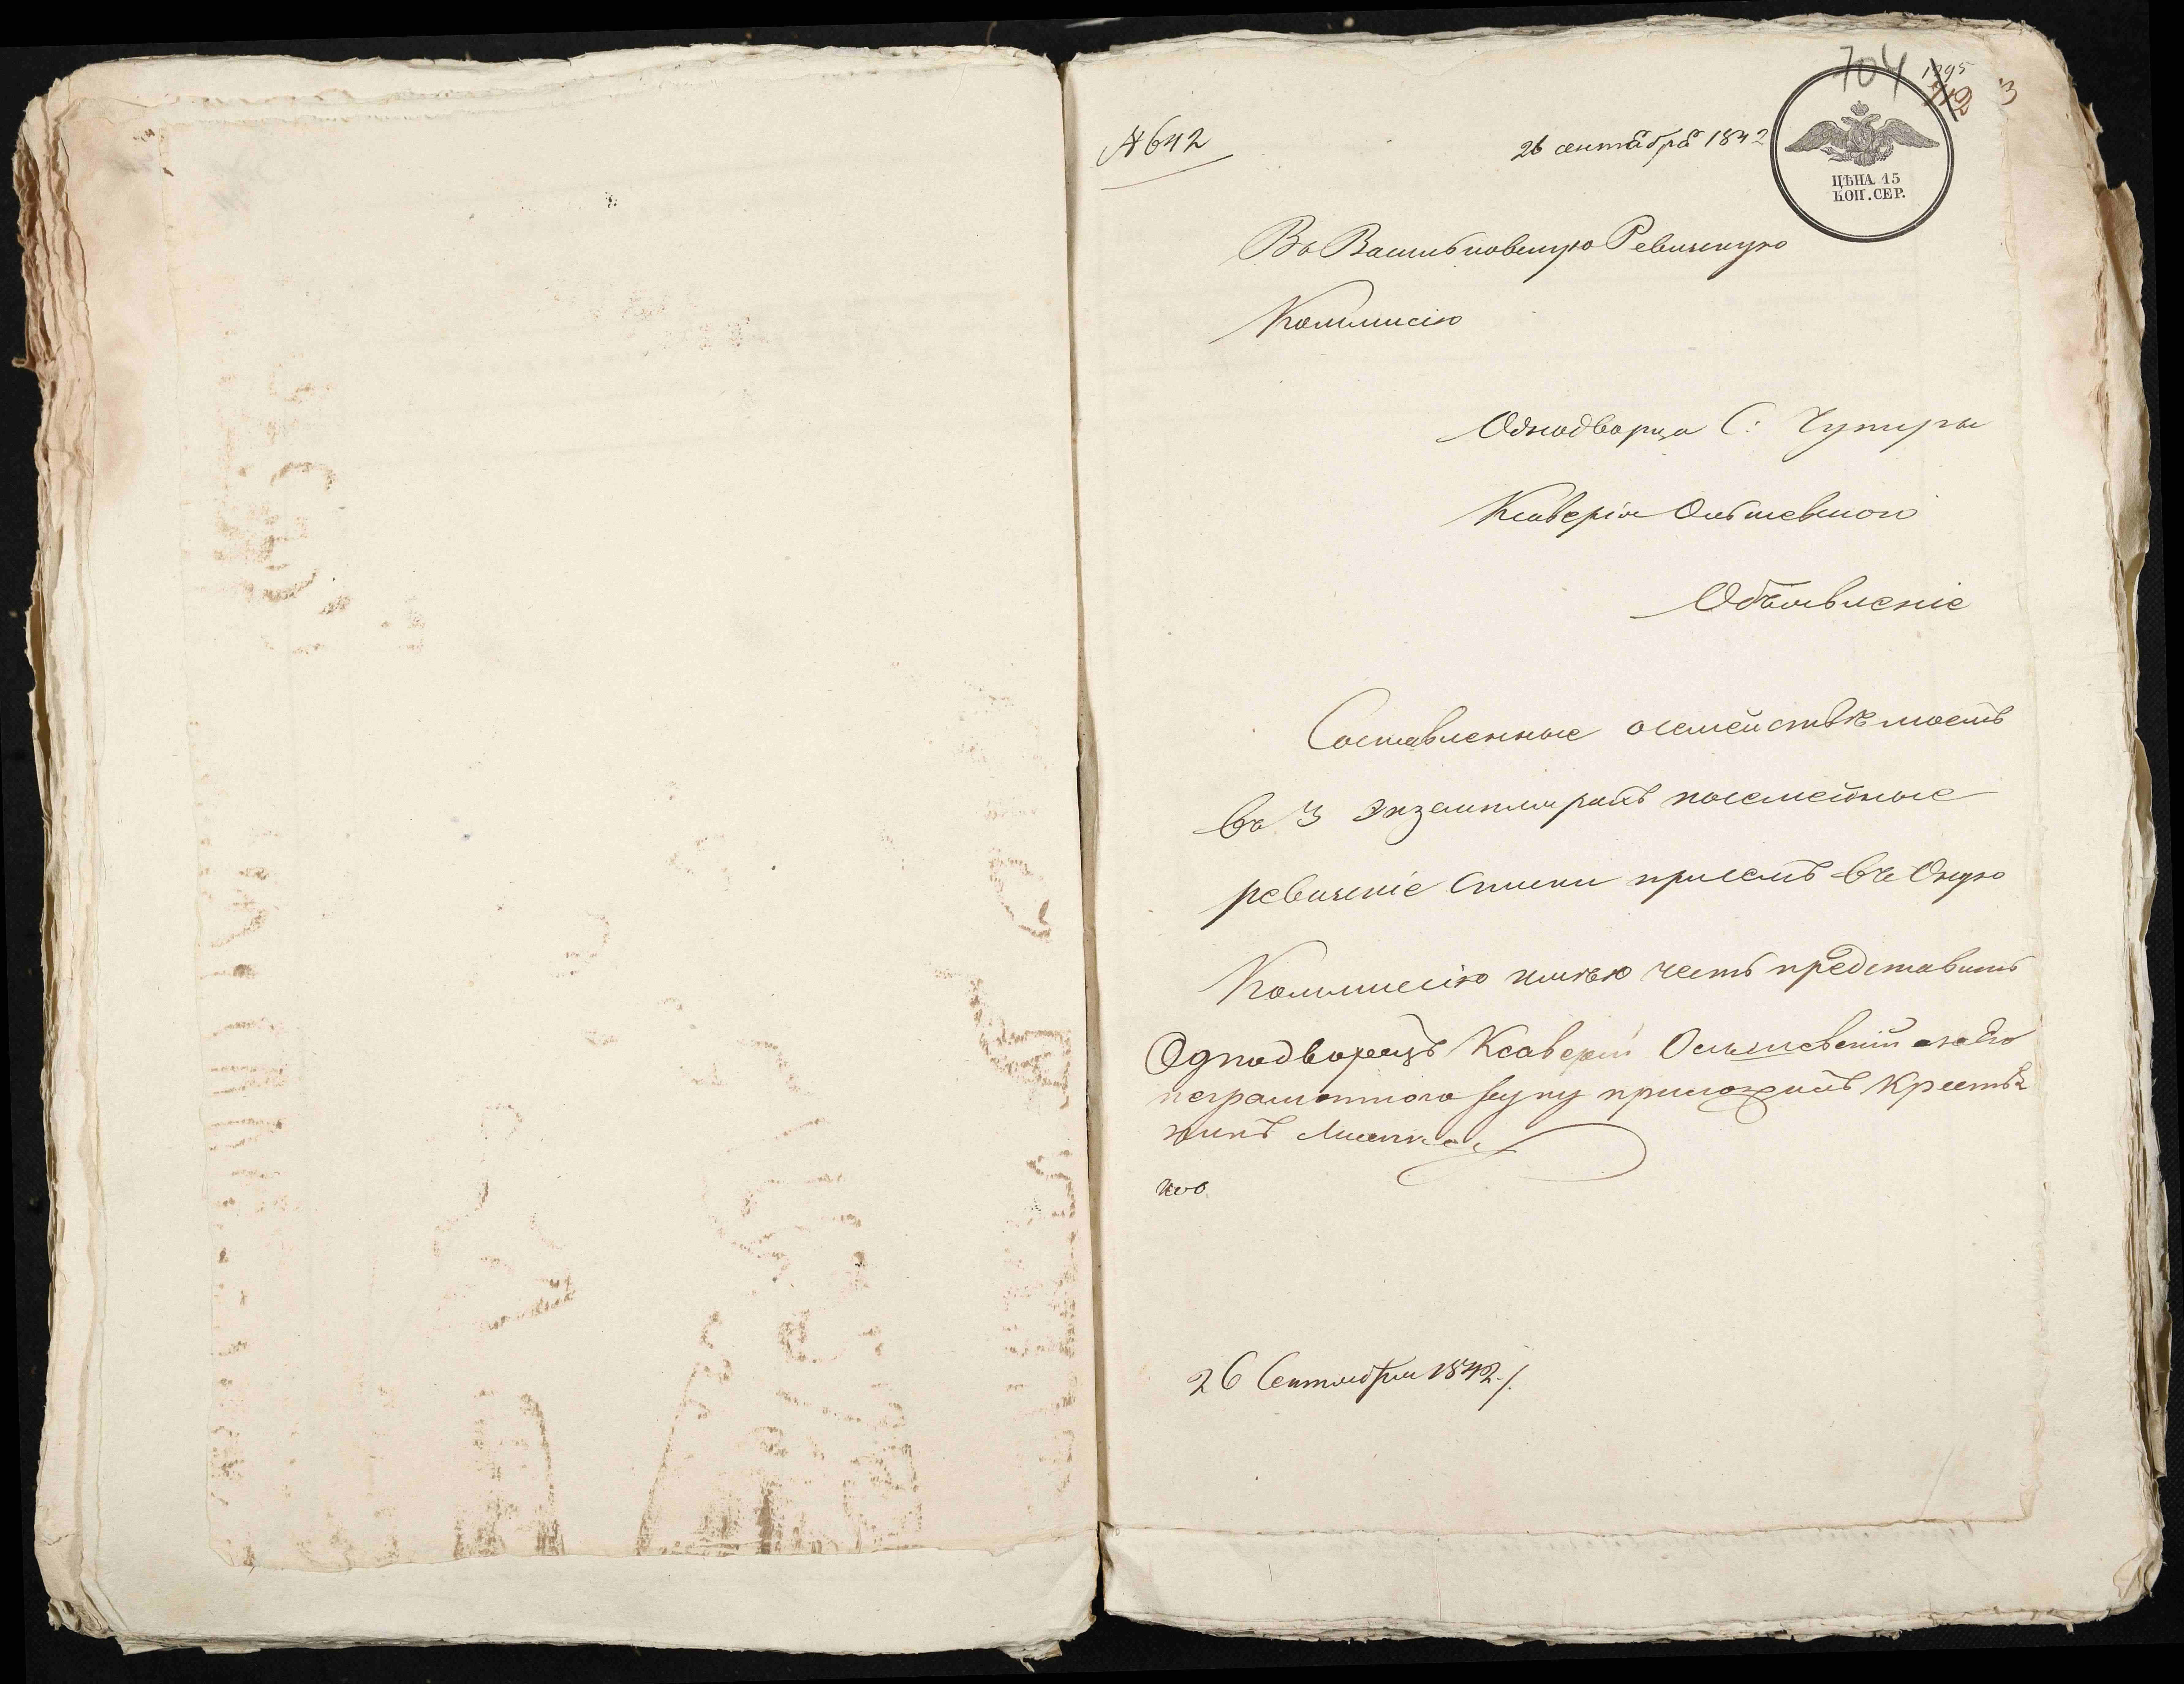 704
1295
3
№ 642
26 сентября 1842
ЦѢНА 15
КОП. СЕР.
Въ Васильковскую Ревизскую
Коммисію
Однодворца С: Чупиры
Ксаверія Ольшевского
Объявленіе
Составленные о семействѣ моемъ
въ 3 экземплярахъ посемейные
ревизскіе списки при семъ въ Оную
Коммисію имѣю честь представить
Однодворецъ Ксаверій Ольшевскій а за его
неграмотного руку приложилъ Крестья
нинъ
26 Сентября 1842